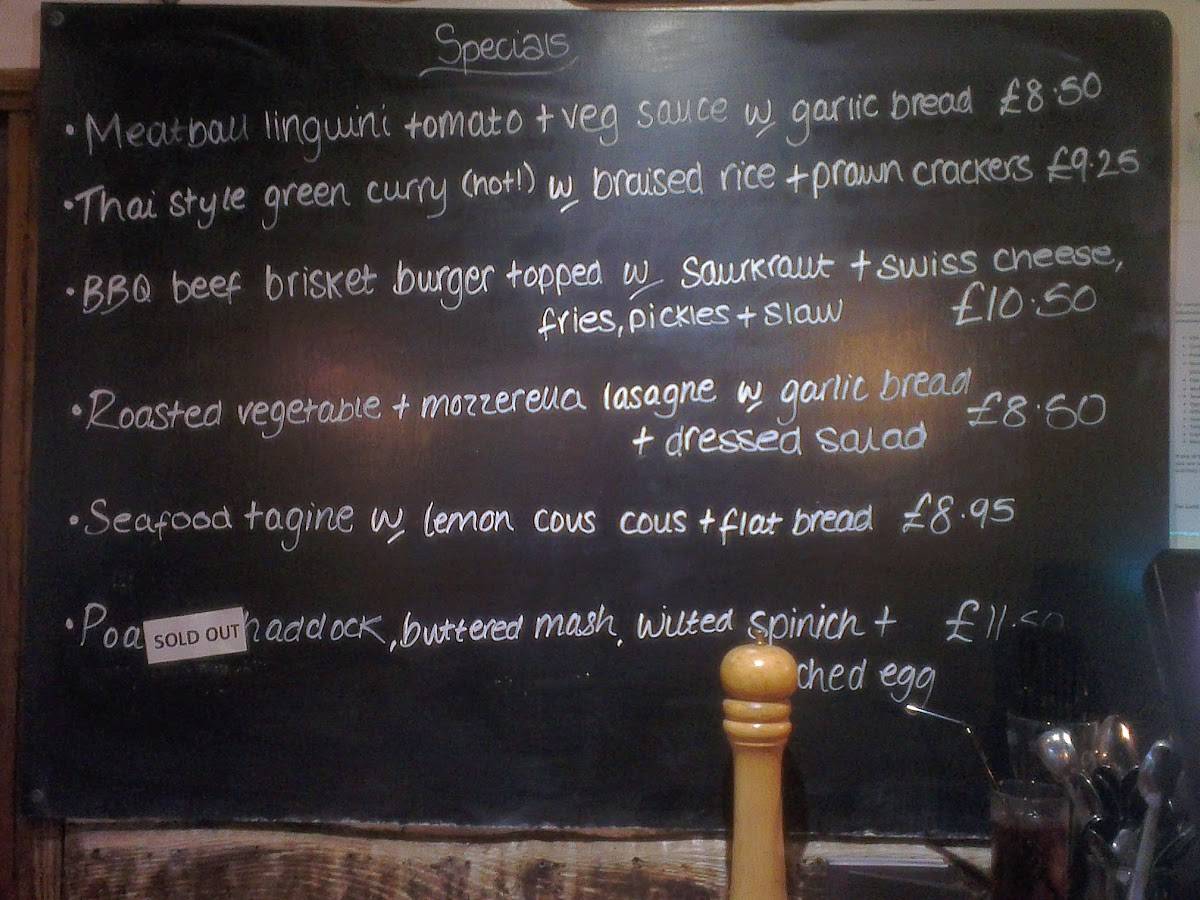 Specials
• Meatball linguini tomato + veg sauce w garlic bread £8.50
• Thai style green curry (hot!) w braised rice + prawn crackers £9.25
• BBQ beef brisket burger topped w saurkraut + swiss cheese,
fries, pickles + slaw £10.50
• Roasted vegetable + mozzerella lasagne w garlic bread
+ dressed salad £8.50
• Seafood tagine w lemon cous cous + flat bread £8.95
• Poa SOLD OUT haddock, buttered mash, wilted spinich + £11.50
ched egg